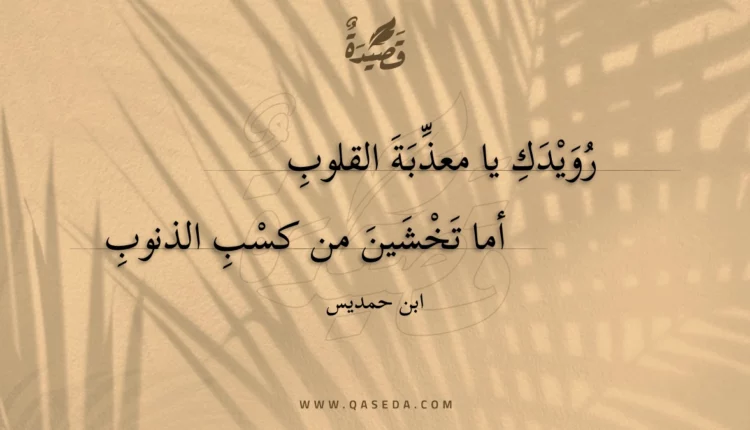 قَصِيْدَةٌ
رُوَيْدَكِ يا معذِّبَةَ القلوبِ
أما تَخْشَينَ من كسْبِ الذنوبِ
ابن حمديس
WWW.QASEDA.COM